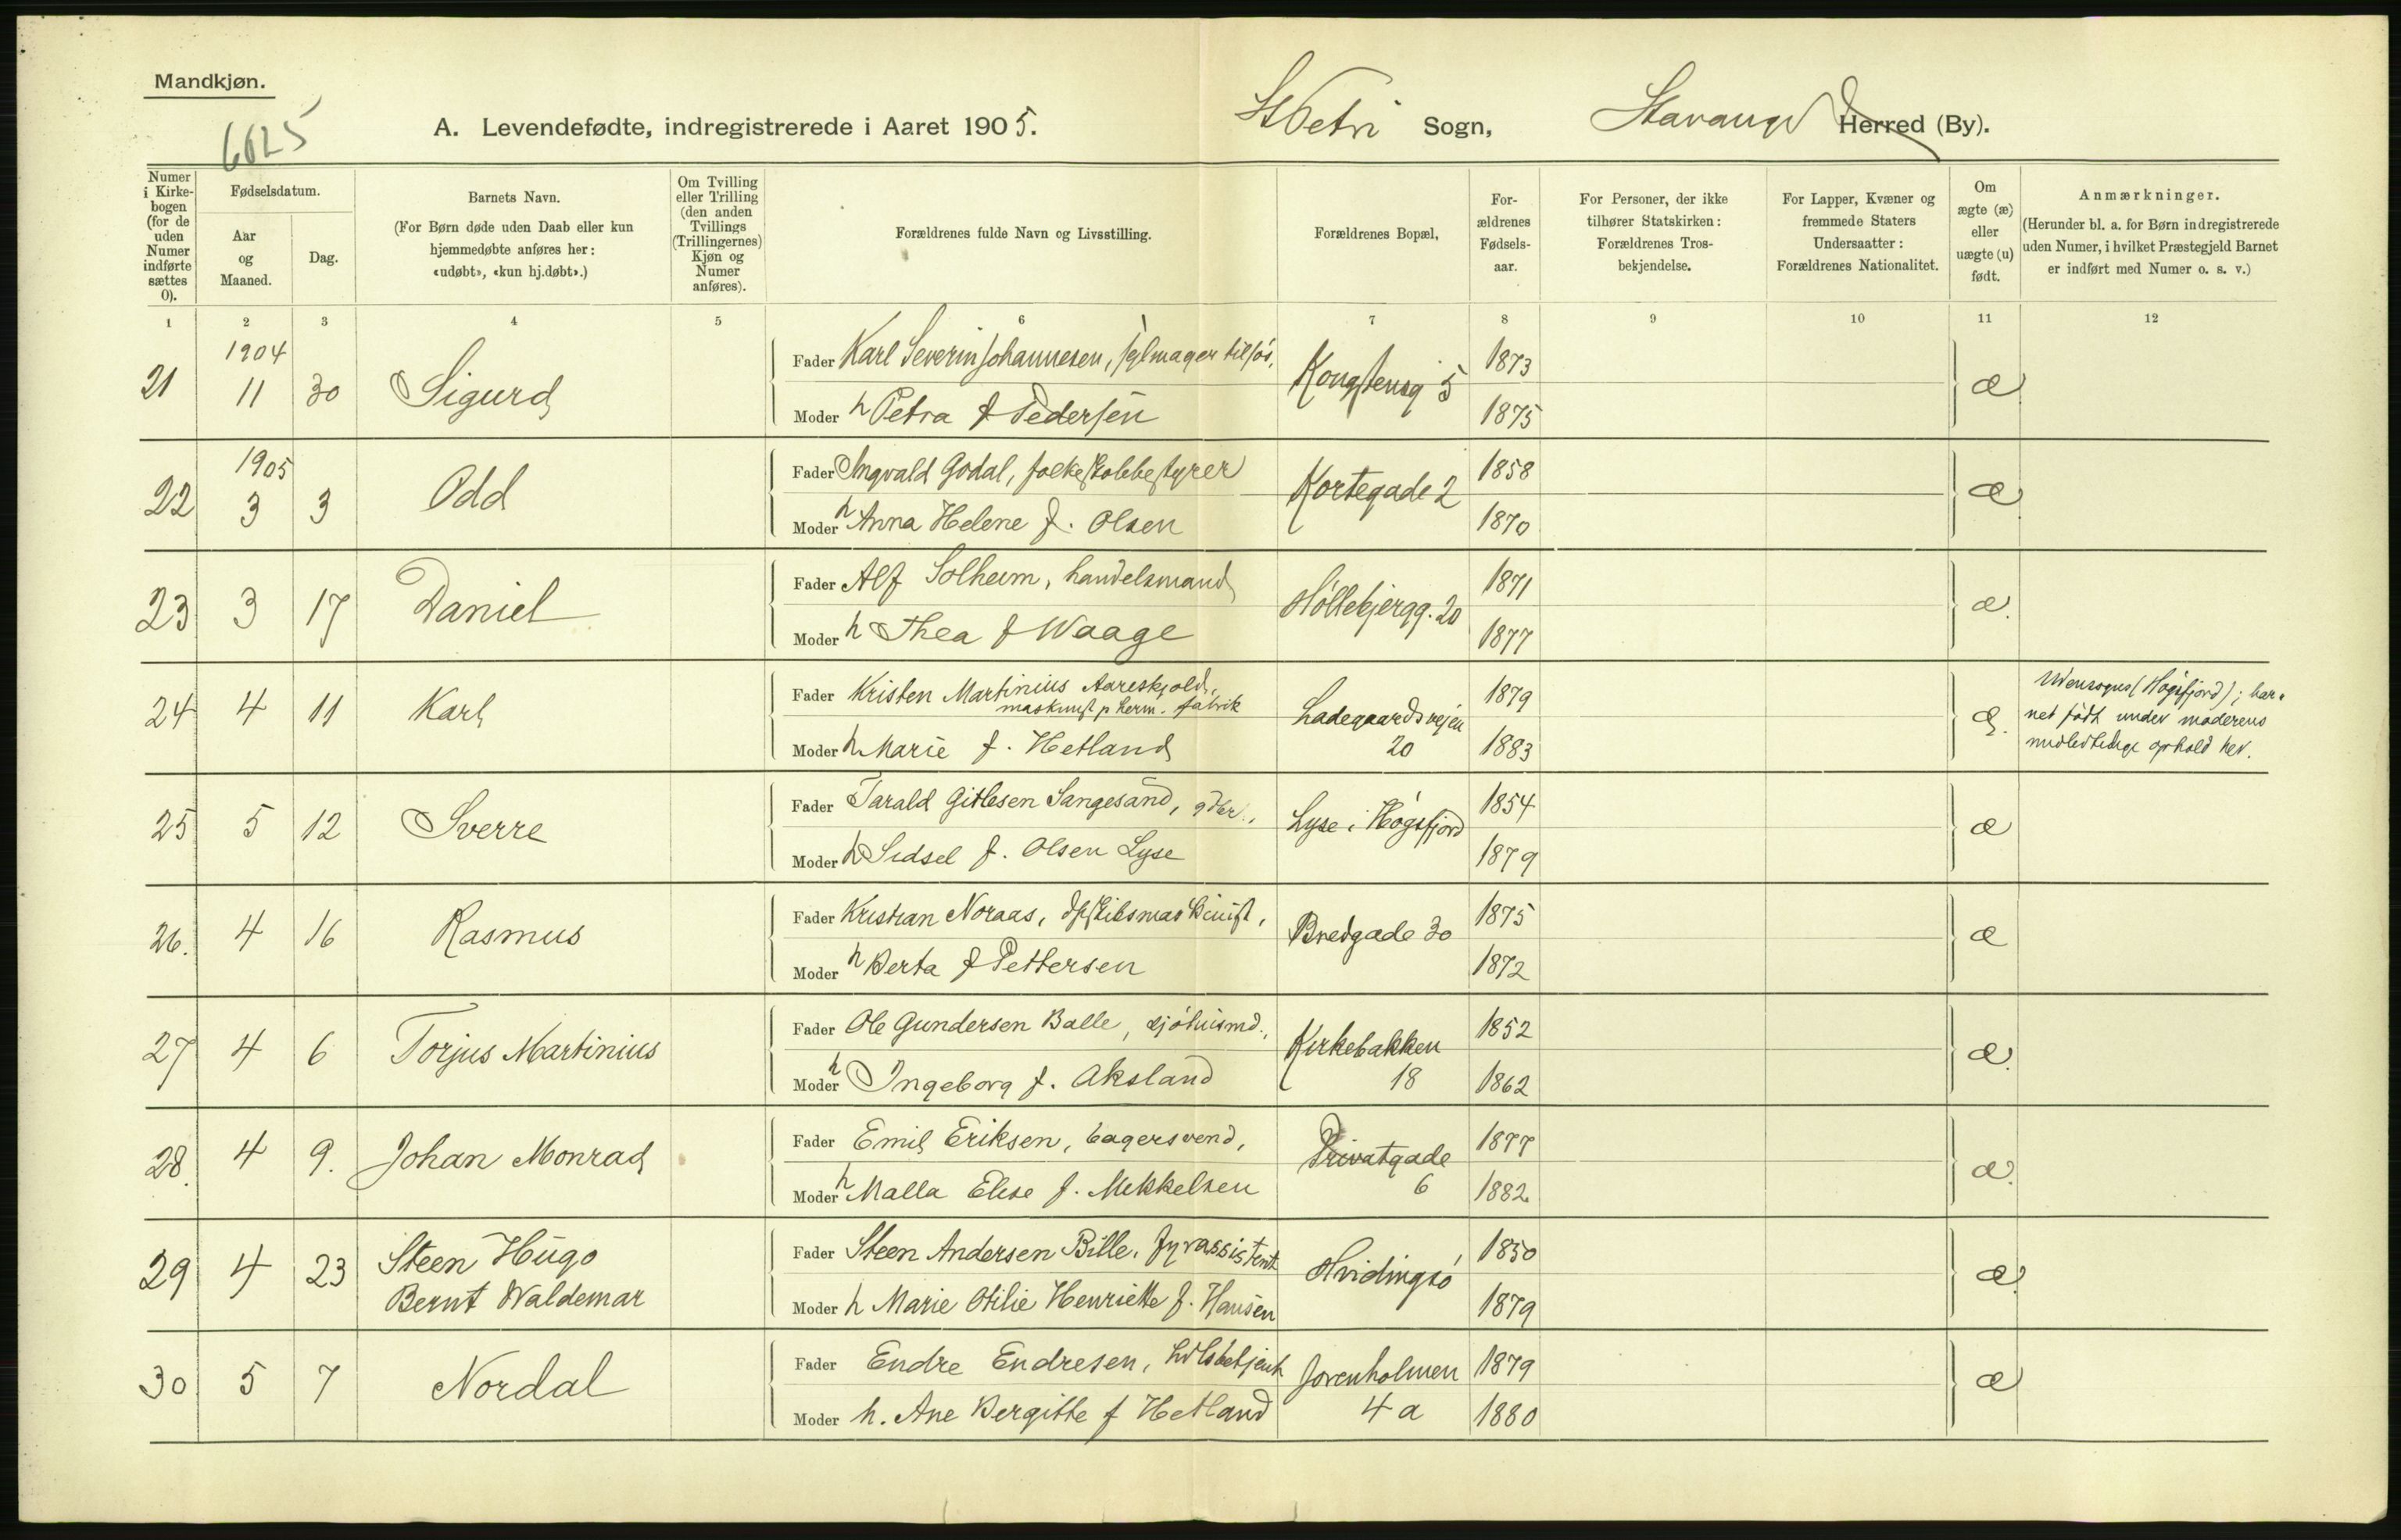 Mandkjøn.
6625
A. Levendefødte, indregistrerede i Aaret 1905.
St Petri Sogn, Stavanger Herred (By).
Numer i Kirkebogen (for de uden Numer indførte sættes 0).
Fødselsdatum.
Aar og Maaned.
Dag.
Barnets Navn.
(For Børn døde uden Daab eller kun hjemmedøbte anføres her: «udøbt», «kun hj.døbt».)
Om Tvilling eller Trilling (den anden Tvillings (Trillingernes) Kjøn og Numer anføres).
Forældrenes fulde Navn og Livsstilling.
Forældrenes Bopæl,
Forældrenes Fødselsaar.
For Personer, der ikke tilhører Statskirken: Forældrenes Trosbekjendelse.
For Lapper, Kvæner og fremmede Staters Undersaatter: Forældrenes Nationalitet.
Om ægte (æ) eller uægte (u) født.
Anmærkninger.
(Herunder bl. a. for Børn indregistrerede uden Numer, i hvilket Præstegjeld Barnet er indført med Numer o. s. v.)
1 2 3 4 5 6 7 8 9 10 11 12
1904
21 11 30 Sigurd
Fader Karl Severin Johannesen, sejlmager tilsjøs, Kongstensg 5 1873
Moder h Petra f Pedersen 1875 æ
1905
22 3 3 Odd
Fader Ingvald Godal, folkeskolebestyrer Kortegade 2 1858
Moder h Anna Helene f. Olsen 1870 æ
23 3 17 Daniel
Fader Alf Solheim, handelsmand Høllebjergg. 20 1871
Moder h Thea f Waage 1877 æ.
24 4 11 Karl
Fader Kristen Martinius Aareskjold, maskinist p herm. fabrik Ladegaardsvejen 20 1879
Moder h Marie f. Hetland 1883 æ.
Udensogns (Høgsfjord); barnet født under moderens midlertidige ophold her.
25 5 12 Sverre
Fader Tarald Gitlesen Sangesand, gdbr., Lyse i Høgsfjord 1854
Moder h Sidsel f. Olsen Lyse 1879 æ
26. 4 16 Rasmus
Fader Kristian Noraas, dpskibsmaskinist, Bredgade 30 1875
Moder h Berta f Pettersen 1872 æ
27 4 6 Torjus Martinius
Fader Ole Gundersen Balle, sjøhusmd., Kirkebakken 18 1852
Moder h Ingeborg f. Aksland 1862 æ.
28. 4 9. Johan Monrad
Fader Emil Eriksen, bagersvend, Privatgade 6 1877
Moder h Malla Elise f. Mikkelsen 1882 æ.
29 4 23 Steen Hugo Bernt Waldemar
Fader Steen Andersen Bille, fyrassistent Hvidingsø 1850
Moder h Marie Otilie Henriette f. Hansen 1879 æ.
30 5 7 Nordal
Fader Endre Endresen, hdlsbetjent Jorenholmen 4 a 1879
Moder h. Ane Bergitte f Hetland 1880 æ